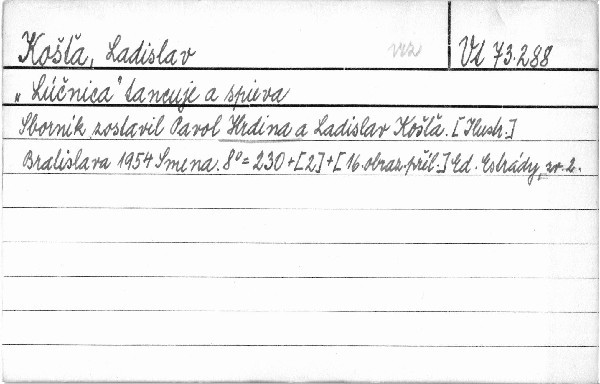 Košťa, Ladislav vrz Vd 73.288
„Lúčnica" tancuje a spieva
Sborník zostavil Pavol Hrdina a Ladislav Košťa. [Ilustr.]
Bratislava 1954 Smena. 8° = 230 + [2] + [16 obraz. příl.] Ed. Estrády, zv. 2.